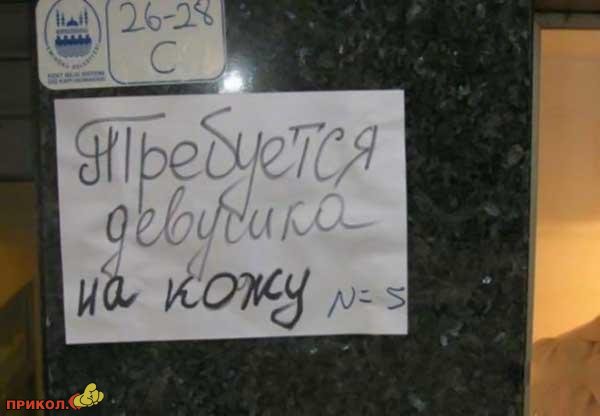 26-28
C
Требуется
девушка
на кожу N=5
ПРИКОЛ.